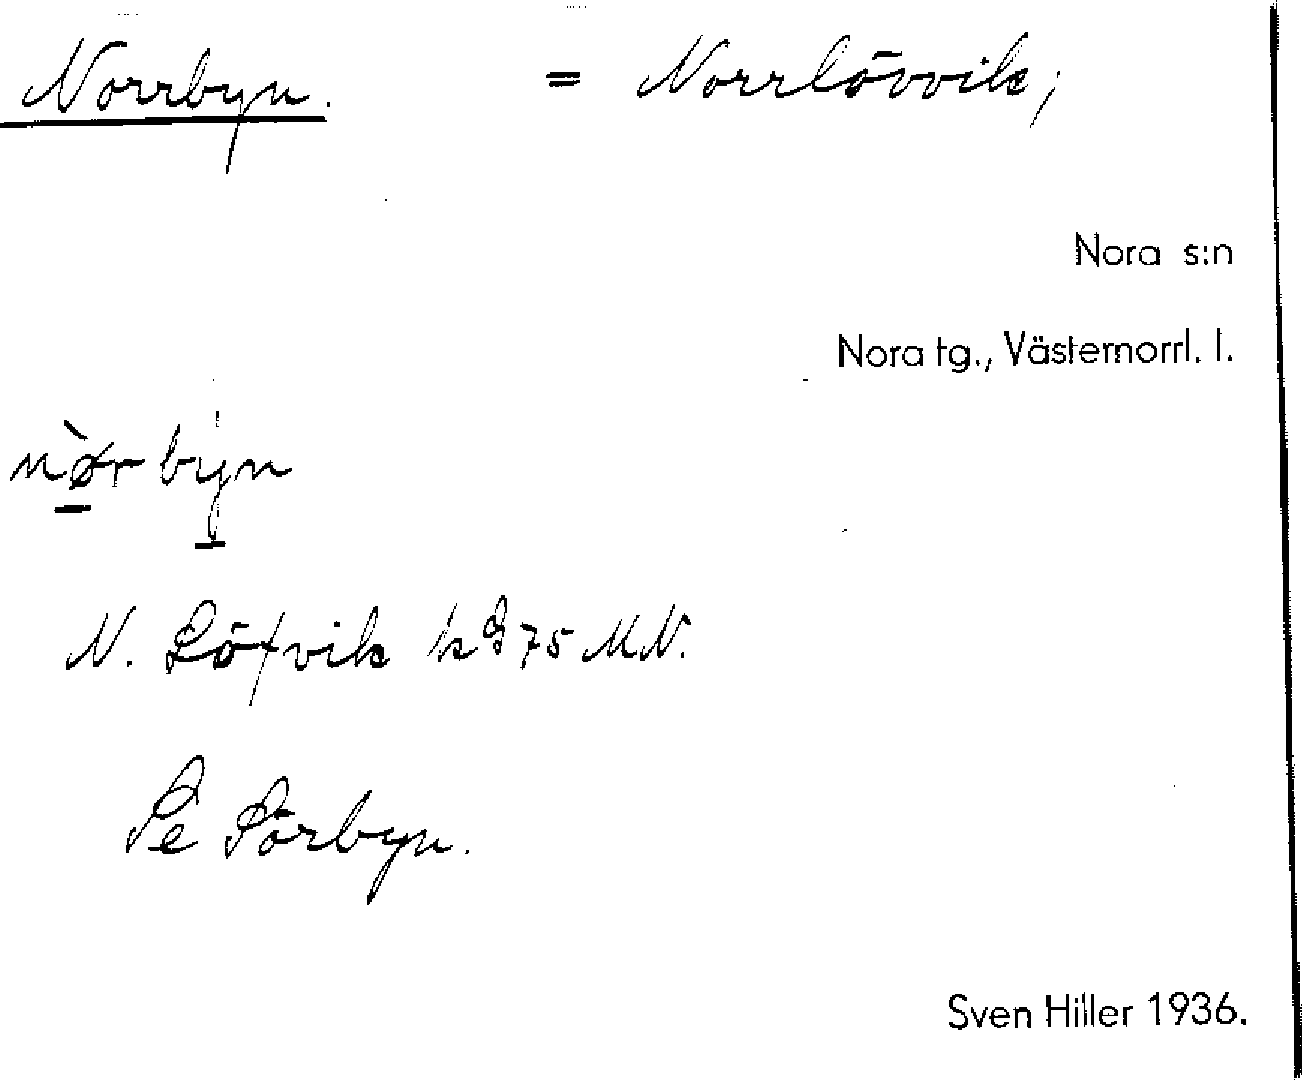 Norrbyn. = Norrlövvik;
Nora s:n
Nora tg., Västernorrl. l.
nø̀r byn
N. Löfvik k 975 MN.
Se Sörbyn.
Sven Hiller 1936.